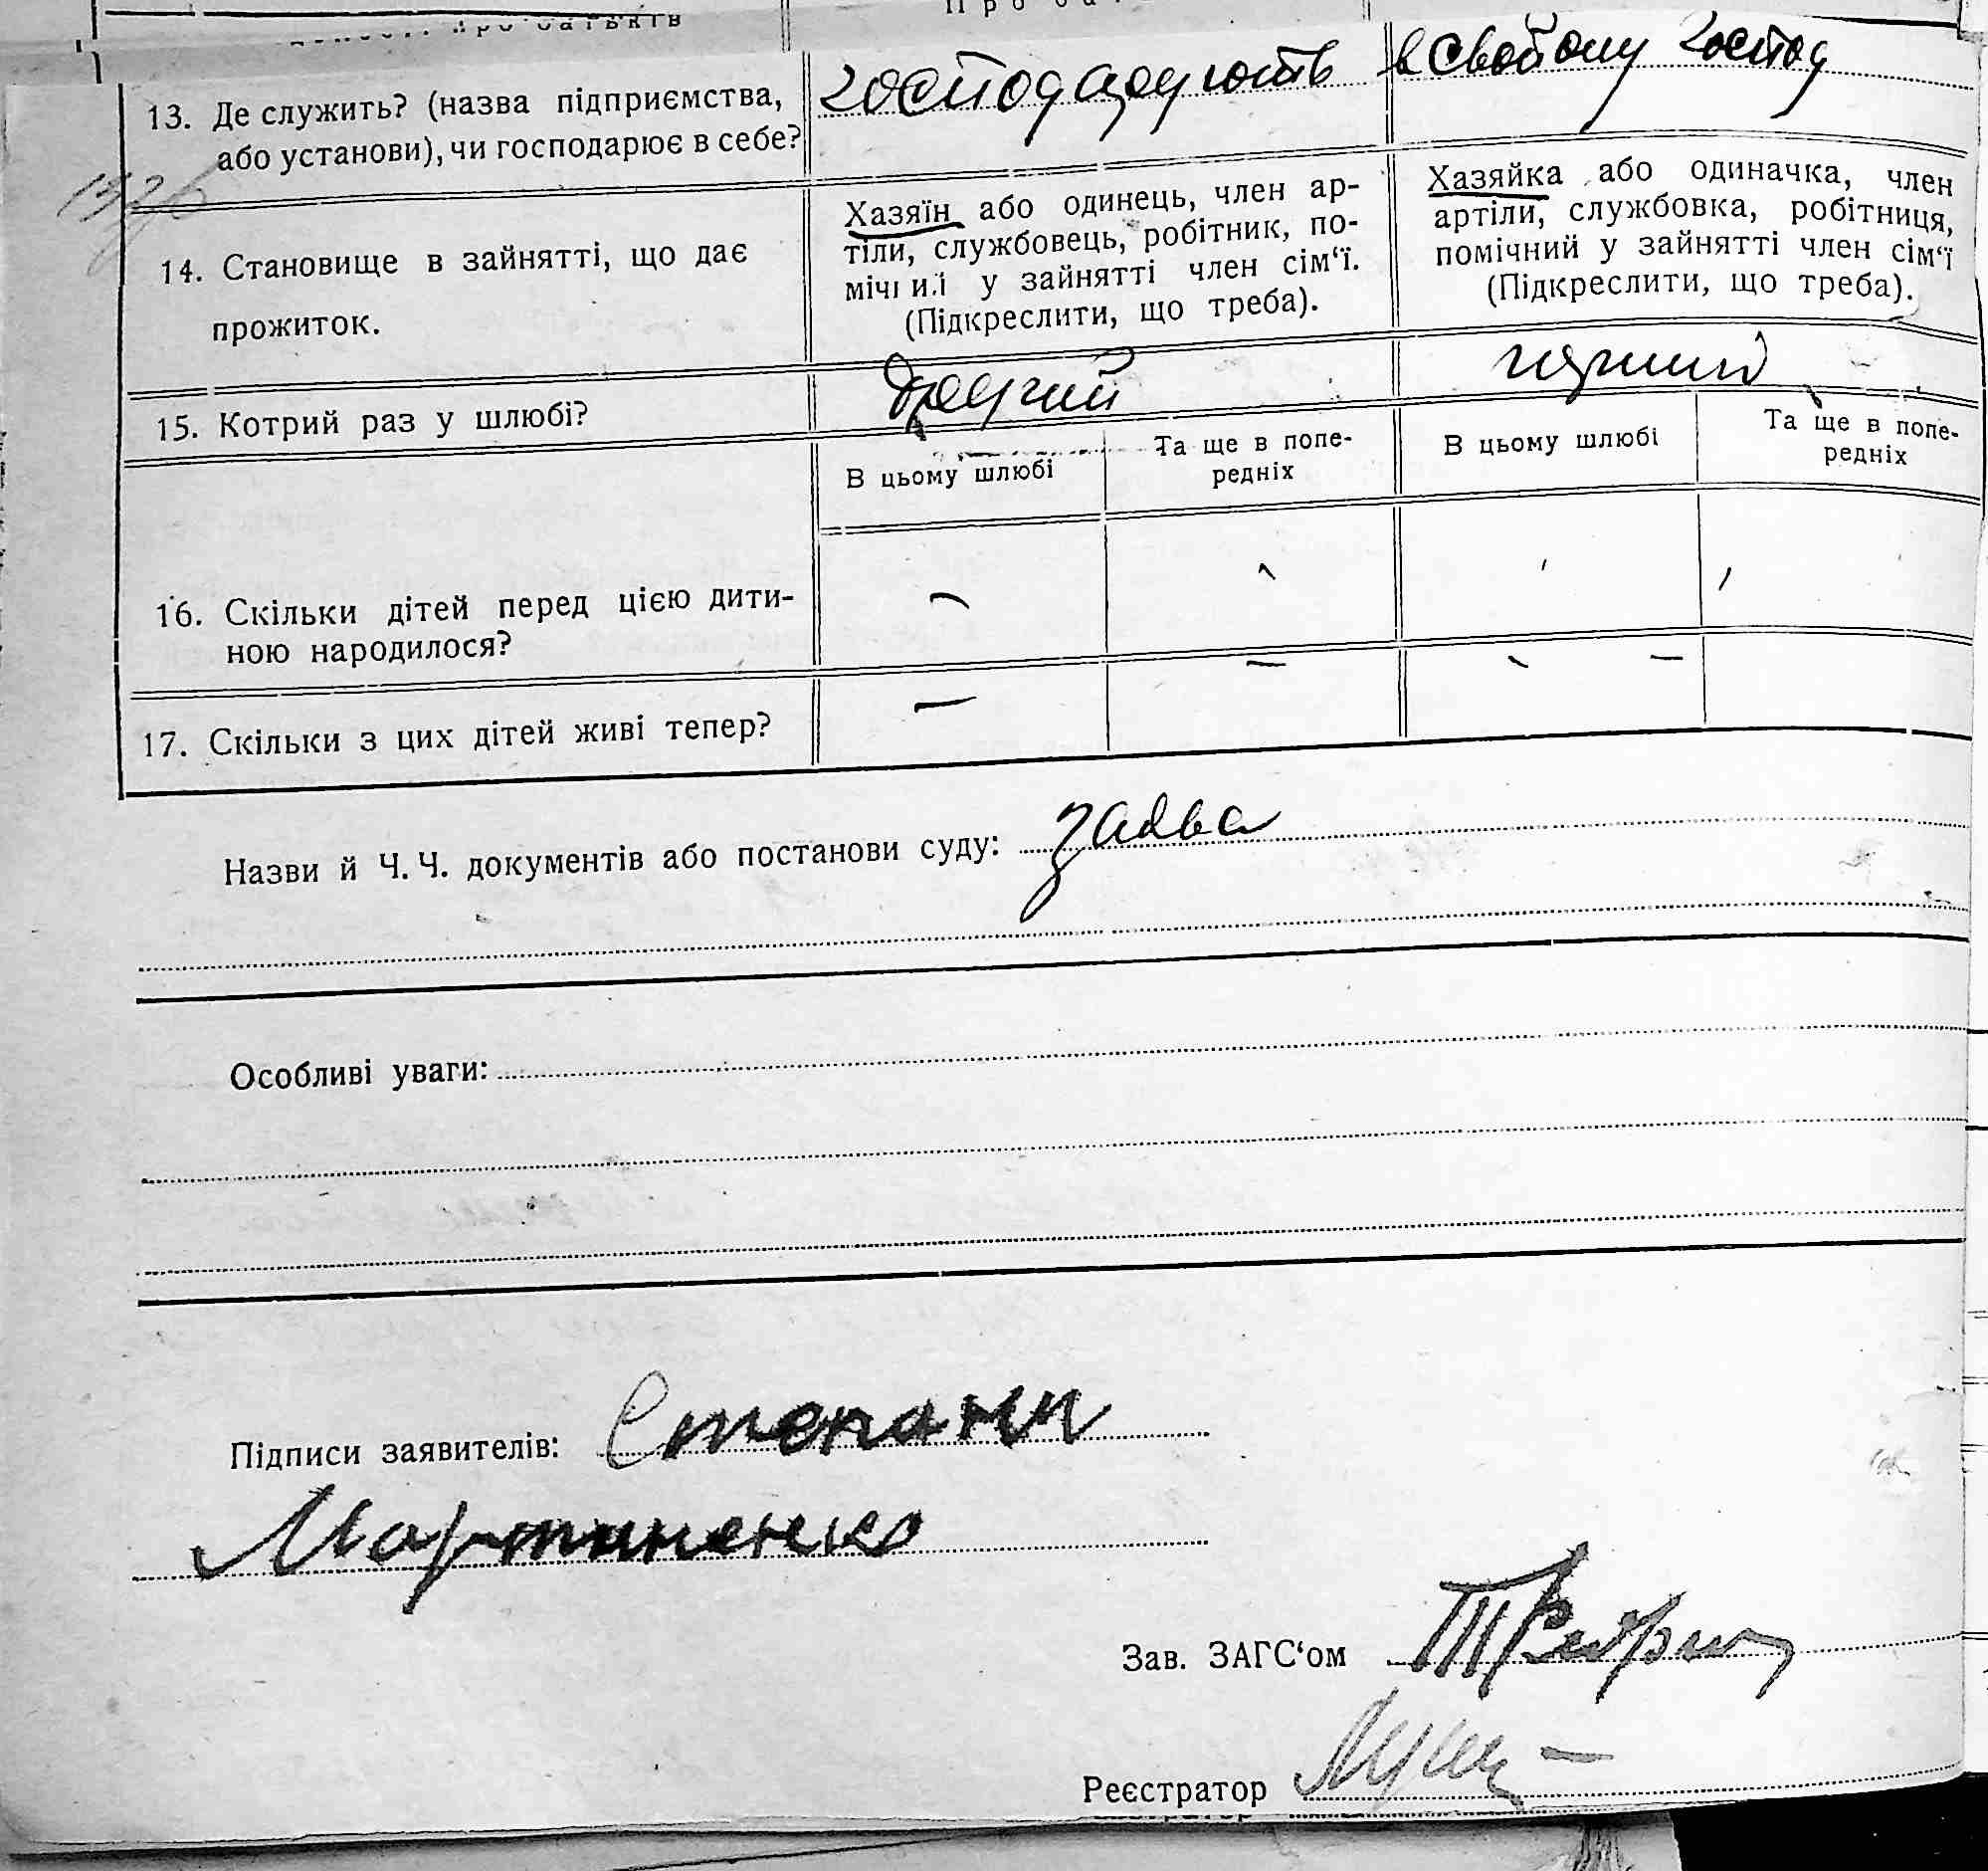 13. Де служить? (назва підприємства,
або установи), чи господарює в себе?
господарюють в свойому господ
14. Становище в зайнятті, що дає
прожиток.
Хазяїн або одинець, член ар-
тіли, службовець, робітник, по-
мічний у зайнятті член сім‘ї.
(Підкреслити, що треба).
Хазяйка або одиначка, член
артіли, службовка, робітниця,
помічний у зайнятті член сім‘ї
(Підкреслити, що треба).
15. Котрий раз у шлюбі?
другий
перший
В цьому шлюбі
Та ще в попе-
редніх
В цьому шлюбі
Та ще в попе-
редніх
16. Скільки дітей перед цією дити-
ною народилося?
17. Скільки з цих дітей живі тепер?
Назви й Ч. Ч. документів або постанови суду: заява
Особливі уваги:
Підписи заявителів: Степани
Мартиненко
Зав. ЗАГС‘ом
Реєстратор